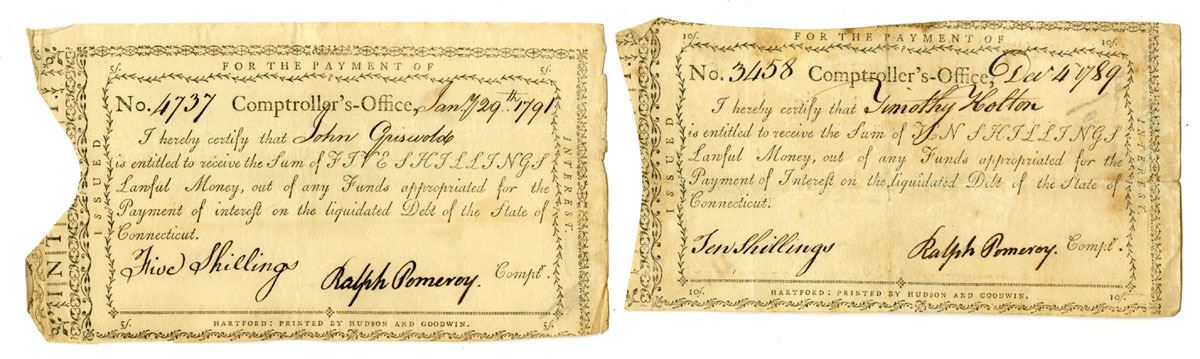 5/. 5/.
FOR THE PAYMENT OF
No. 4737 Comptroller's-Office, Jan'y 29th 1791
I hereby certify that John Griswold
is entitled to receive the Sum of FIVE SHILLINGS
Lawful Money, out of any Funds appropriated for the
Payment of interest on the liquidated Debt of the State of
Connecticut.
Five Shillings Ralph Pomeroy. Compt'r.
5/. HARTFORD: PRINTED BY HUDSON AND GOODWIN. 5/.
ISSUED
INTEREST.
10/. 10/.
FOR THE PAYMENT OF
No. 3458 Comptroller's-Office, Decr 4 1789
I hereby certify that Timothy Holton
is entitled to receive the Sum of TEN SHILLINGS
Lawful Money, out of any Funds appropriated for the
Payment of Interest on the liquidated Debt of the State of
Connecticut.
Ten Shillings Ralph Pomeroy. Compt'r.
10/. HARTFORD: PRINTED BY HUDSON AND GOODWIN. 10/.
ISSUED
INTEREST.